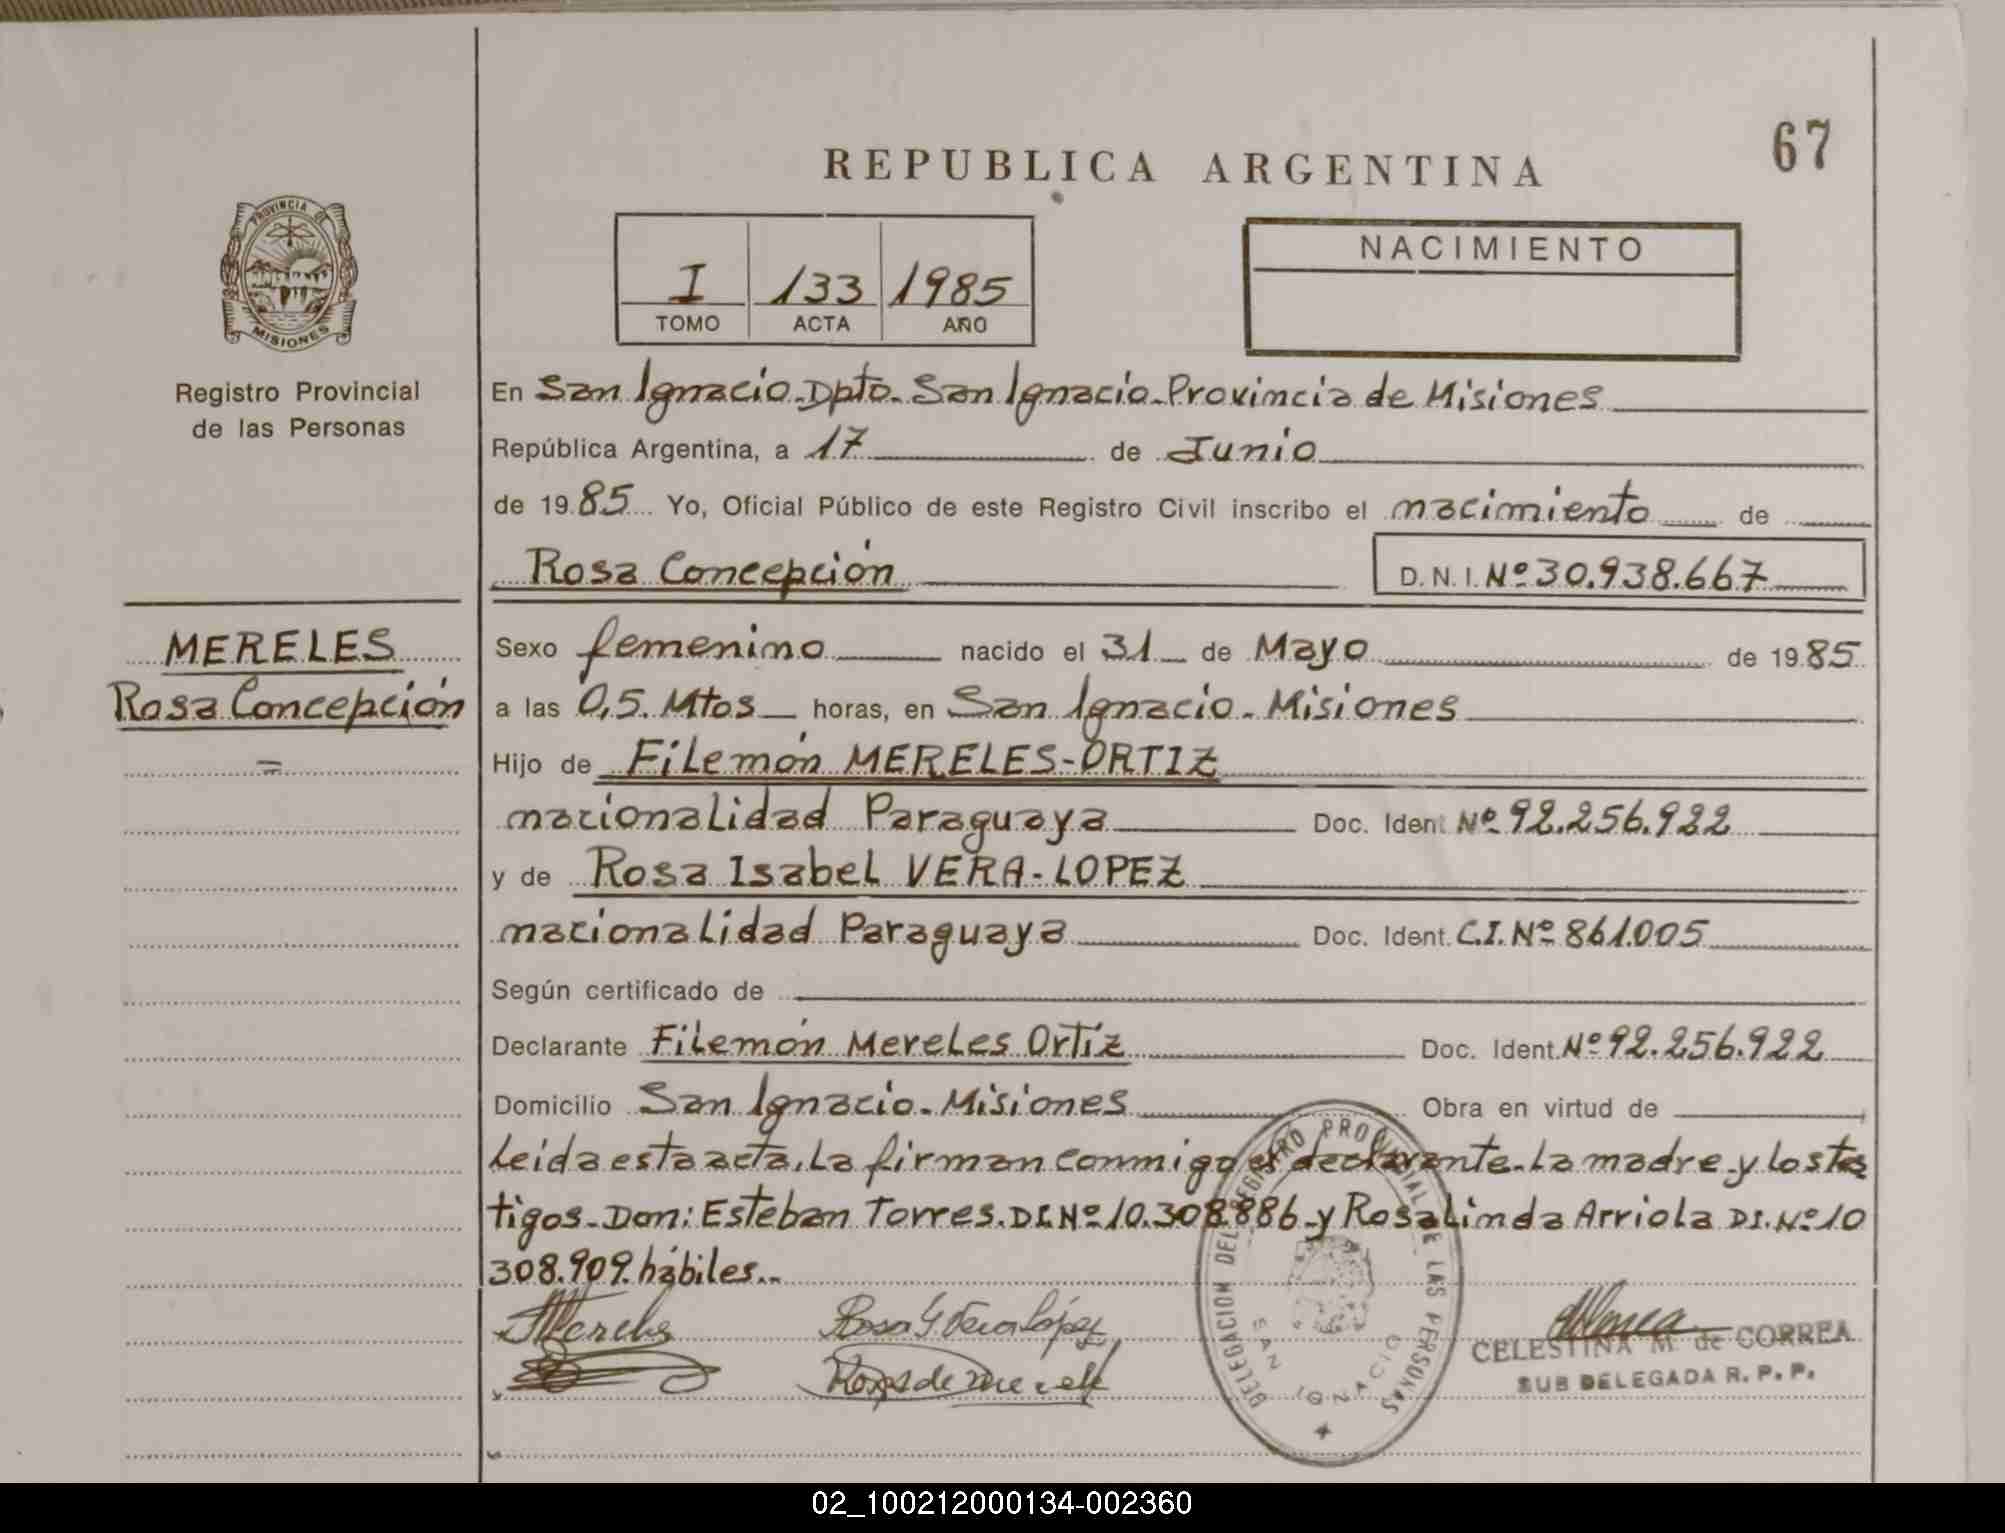 67
REPUBLICA ARGENTINA
PROVINCIA DE
MISIONES
Registro Provincial
de las Personas
I 133 1985
TOMO ACTA AÑO
NACIMIENTO
En San Ignacio-Dpto. San Ignacio-Provincia de Misiones
República Argentina, a 17 de Junio
de 1985 Yo, Oficial Público de este Registro Civil inscribo el nacimiento de
Rosa Concepción D.N.I. Nº 30.938.667
MERELES
Rosa Concepción
=
Sexo femenino nacido el 31 de Mayo de 1985
a las 0,5. Mtos horas, en San Ignacio - Misiones
Hijo de Filemón MERELES-ORTIZ
nacionalidad Paraguaya Doc. Ident Nº 92.256.922
y de Rosa Isabel VERA-LOPEZ
nacionalidad Paraguaya Doc. Ident. C.I. Nº 861.005
Según certificado de
Declarante Filemón Mereles Ortíz Doc. Ident. Nº 92.256.922
Domicilio San Ignacio - Misiones Obra en virtud de
Leída esta acta, la firman conmigo el declarante - la madre - y los tes
tigos - Don: Esteban Torres. D.I. Nº 10.308.886 - y Rosalinda Arriola D.I. Nº 10
308.909. hábiles..
DELEGACION DEL REGISTRO PROVINCIAL DE LAS PERSONAS
SAN IGNACIO
CELESTINA M. de CORREA
SUB DELEGADA R. P. P.
02_100212000134-002360